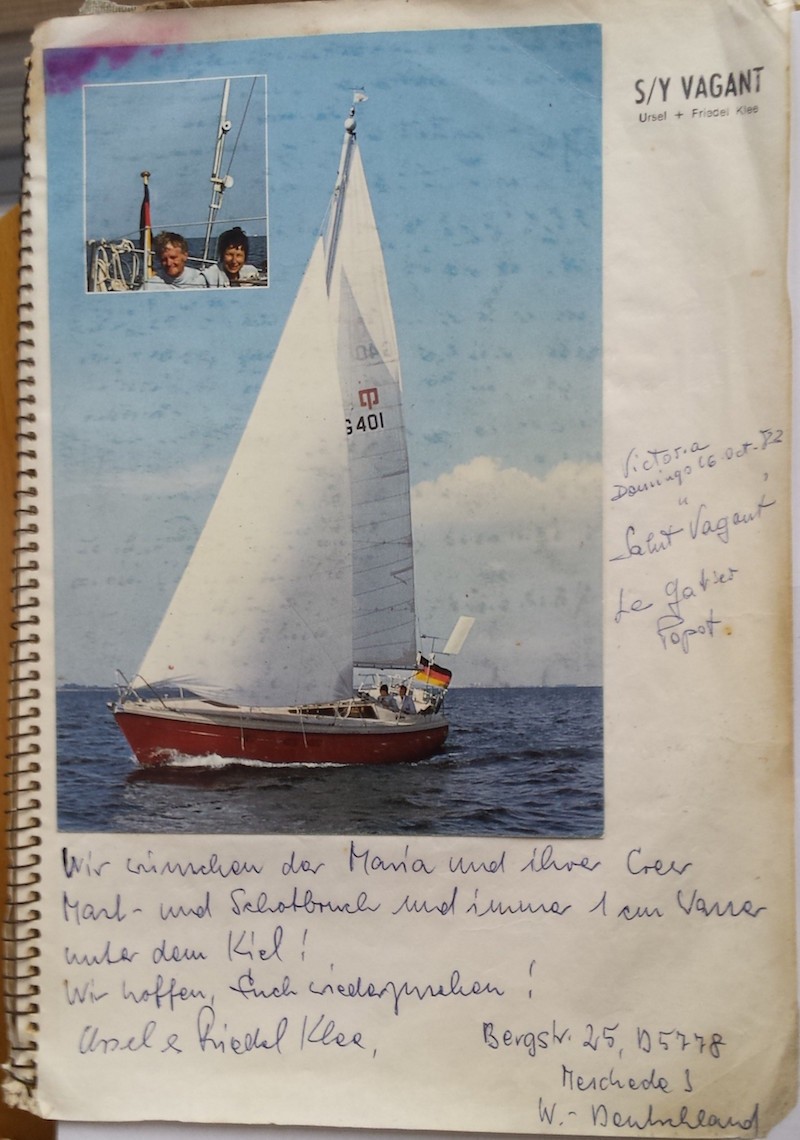 S/Y VAGANT
Ursel + Friedel Klee
G401
Victoria
Domingo 16 Oct-82
Salut Vagant
Le
Popot
Wir wünschen der Maria und ihrer Crew
Mast- und Schotbruch und immer 1 cm Wasser
unter dem Kiel!
Wir hoffen, Euch wiederzusehen!
Ursel & Friedel Klee,
Bergstr. 25, D5778
Meschede 3
W.-Deutschland